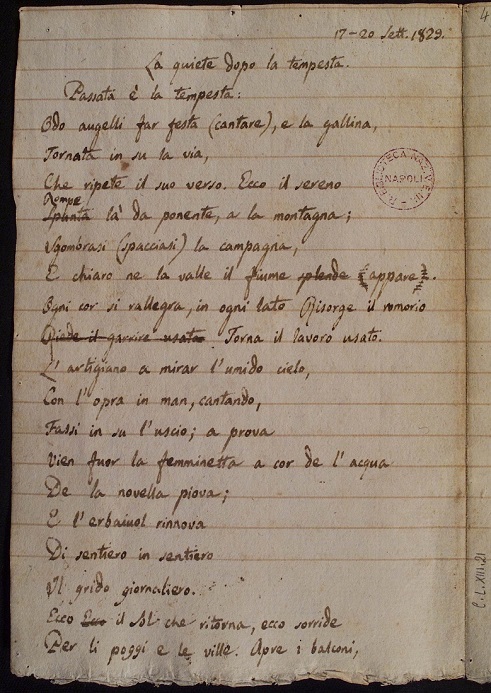 17-20 Sett. 1829.
4
La quiete dopo la tempesta.
Passata è la tempesta:
Odo augelli far festa (cantare), e la gallina,
Tornata in su la via,
Che ripete il suo verso. Ecco il sereno
Rompe
Spunta là da ponente, a la montagna;
Sgombrasi (spacciasi) la campagna,
E chiaro ne la valle il fiume splende (appare).
Ogni cor si rallegra, in ogni lato Risorge il romorio
Riede il garrire usato Torna il lavoro usato.
L'artigiano a mirar l'umido cielo,
Con l'opra in man, cantando,
Fassi in su l'uscio; a prova
Vien fuor la femminetta a cor de l'acqua
De la novella piova;
E l'erbaiuol rinnova
Di sentiero in sentiero
Il grido giornaliero.
Ecco Ecco il Sol che ritorna, ecco sorride
Per li poggi e le ville. Apre i balconi,
NAPOLI
C.L.XIII.21